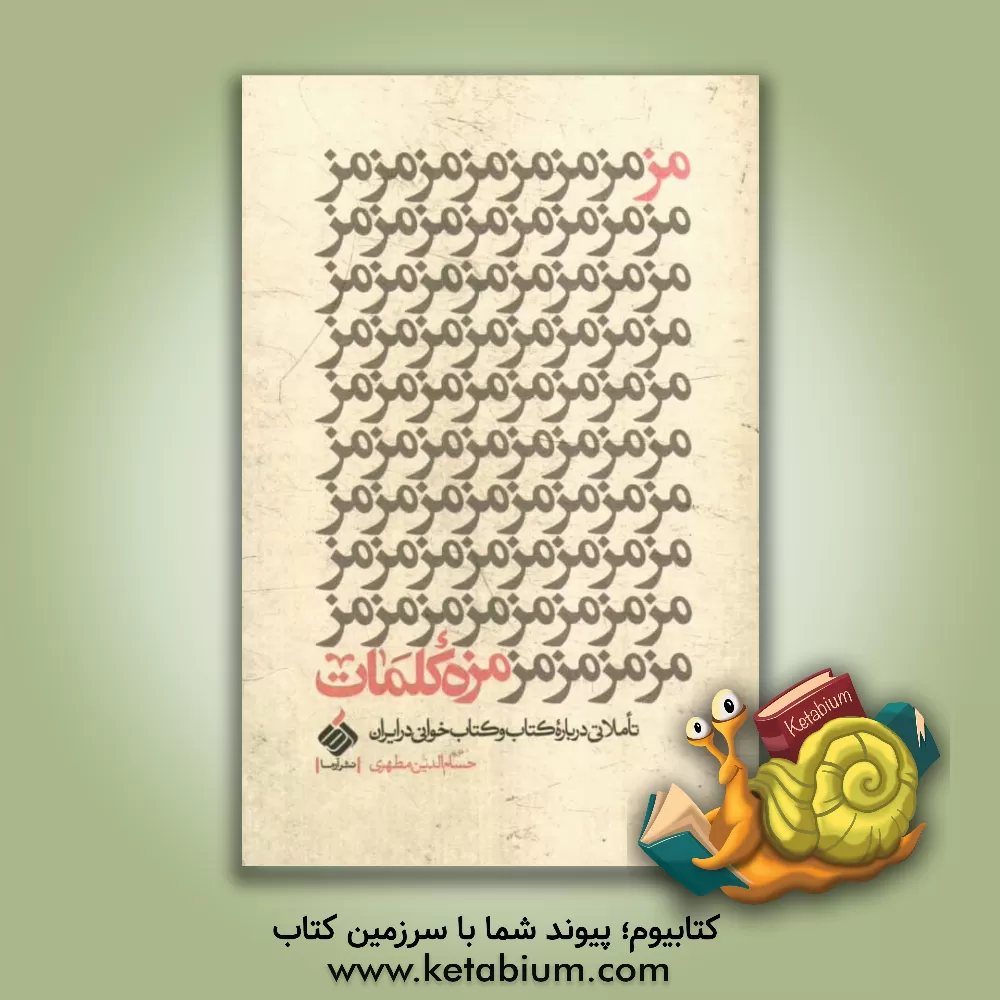 مزمزمزمزمزمزمزمز
مزمزمزمزمزمزمزمز
مزمزمزمزمزمزمزمز
مزمزمزمزمزمزمزمز
مزمزمزمزمزمزمزمز
مزمزمزمزمزمزمزمز
مزمزمزمزمزمزمزمز
مزمزمزمزمزمزمزمز
مزمزمزمزمزمزمزمز
مزمزمزمز مزهٔ کلمات
تأملاتی دربارهٔ کتاب و کتاب‌خوانی در ایران
حسام‌الدین مطهری
نشر آرما
Ketabium
کتابیوم؛ پیوند شما با سرزمین کتاب
www.ketabium.com